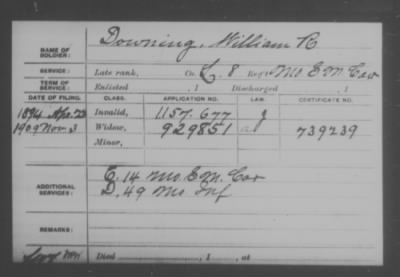 NAME OF SOLDIER: Downing, William R
SERVICE: Late rank, Co. C, 8 Reg't Mo S M Cav
TERM OF SERVICE: Enlisted , 1 Discharged , 1
DATE OF FILING. CLASS. APPLICATION NO. LAW. CERTIFICATE NO.
1894 Apr. 23 Invalid, 1157.677 g
1909 Nov. 3 Widow, 929851 739739
Minor,
ADDITIONAL SERVICES: C. 14 Mo S M. Cav
D. 49 Mo Inf
REMARKS:
Died , 1 , at